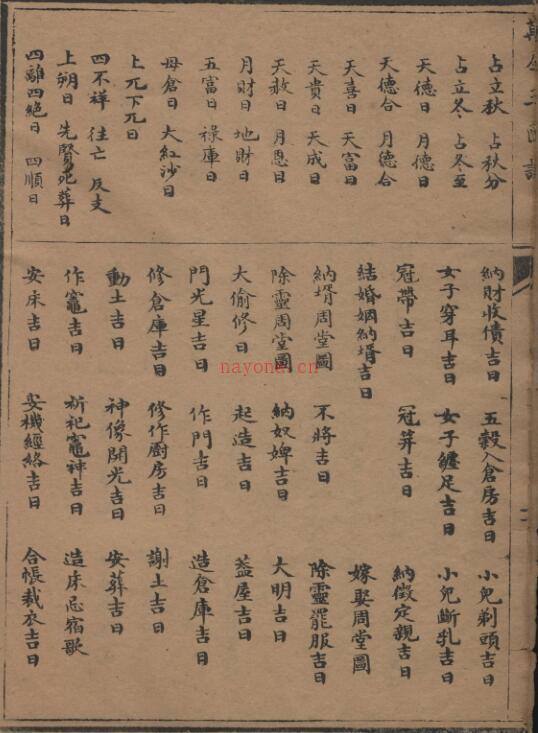 占立秋 占秋分
占立冬 占冬至
天德日 月德日
天德合 月德合
天喜日 天富日
天貴日 天成日
天赦日 月恩日
月財日 地財日
五富日 祿庫日
母倉日 大紅沙日
上兀下兀日
四不祥 往亡 反支
上朔日 先賢死葬日
四離四絕日 四順日
納財收債吉日 五穀入倉房吉日 小兒剃頭吉日
女子穿耳吉日 女子纏足吉日 小兒斷乳吉日
冠帶吉日 冠笄吉日 納徵定親吉日
結婚姻納壻吉日 嫁娶周堂圖
納壻周堂圖 不將吉日 除靈罷服吉日
除靈周堂圖 納奴婢吉日 大明吉日
大偷修日 起造吉日 蓋屋吉日
門光星吉日 作門吉日 造倉庫吉日
修倉庫吉日 修作廚房吉日 謝土吉日
動土吉日 神像開光吉日 安葬吉日
作竈吉日 祈祀竈神吉日 造床忌宿歌
安床吉日 安機經絡吉日 合帳裁衣吉日
nayona.cn